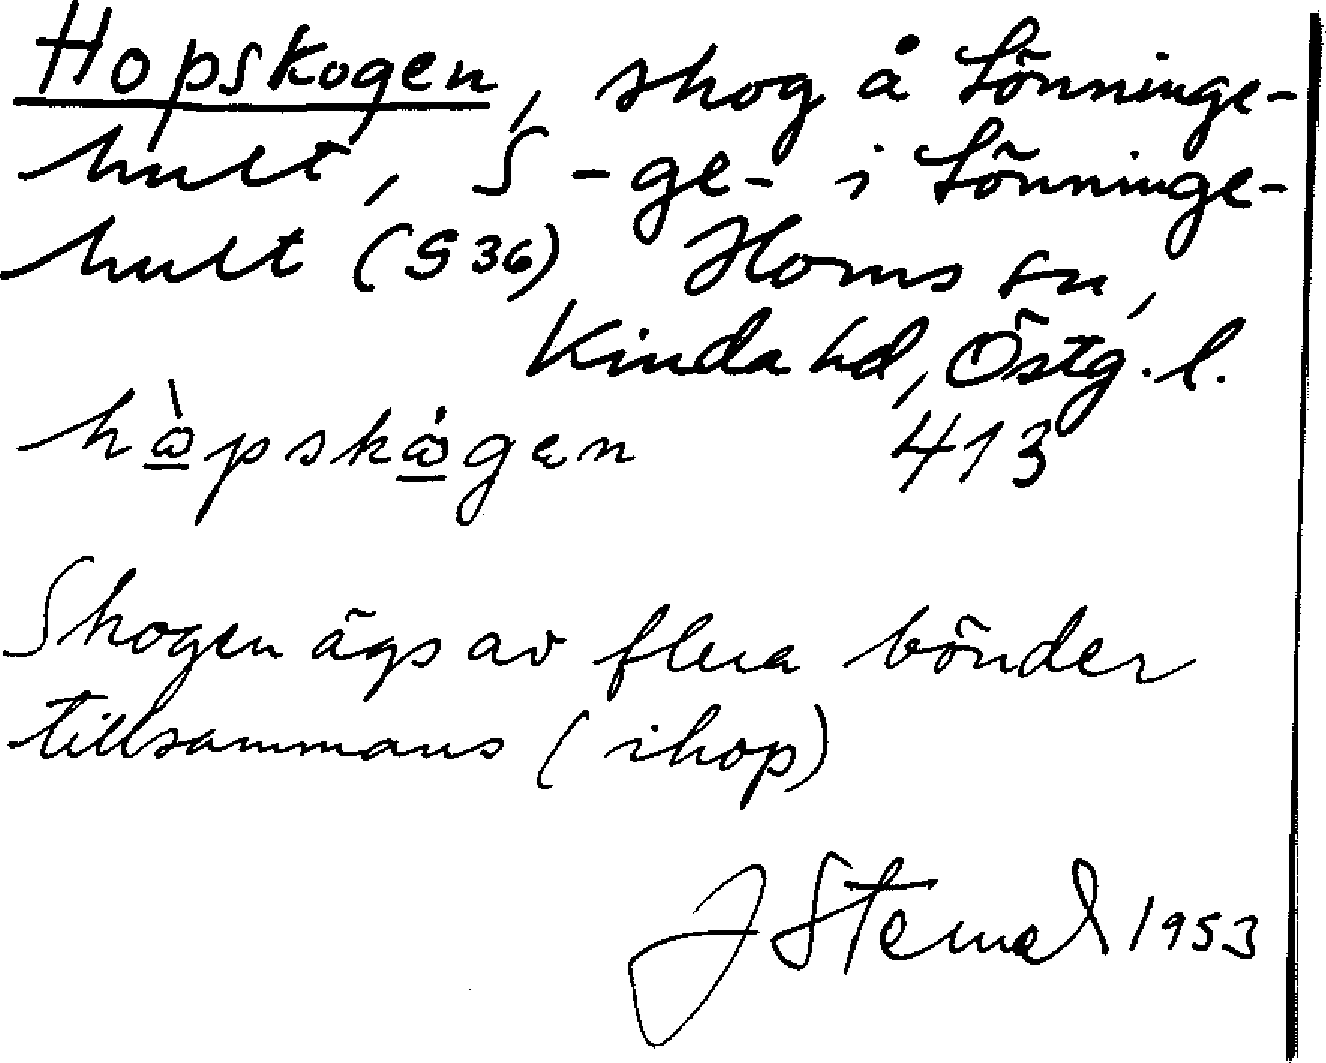 Hopskogen, skog å Lönninge-
hult, S -ge- i Lönninge-
hult (S 36) Horns sn,
Kinda hd, Östg. l.
hòpskågen 413
Skogen ägs av flera bönder
tillsammans (ihop)
J 1953